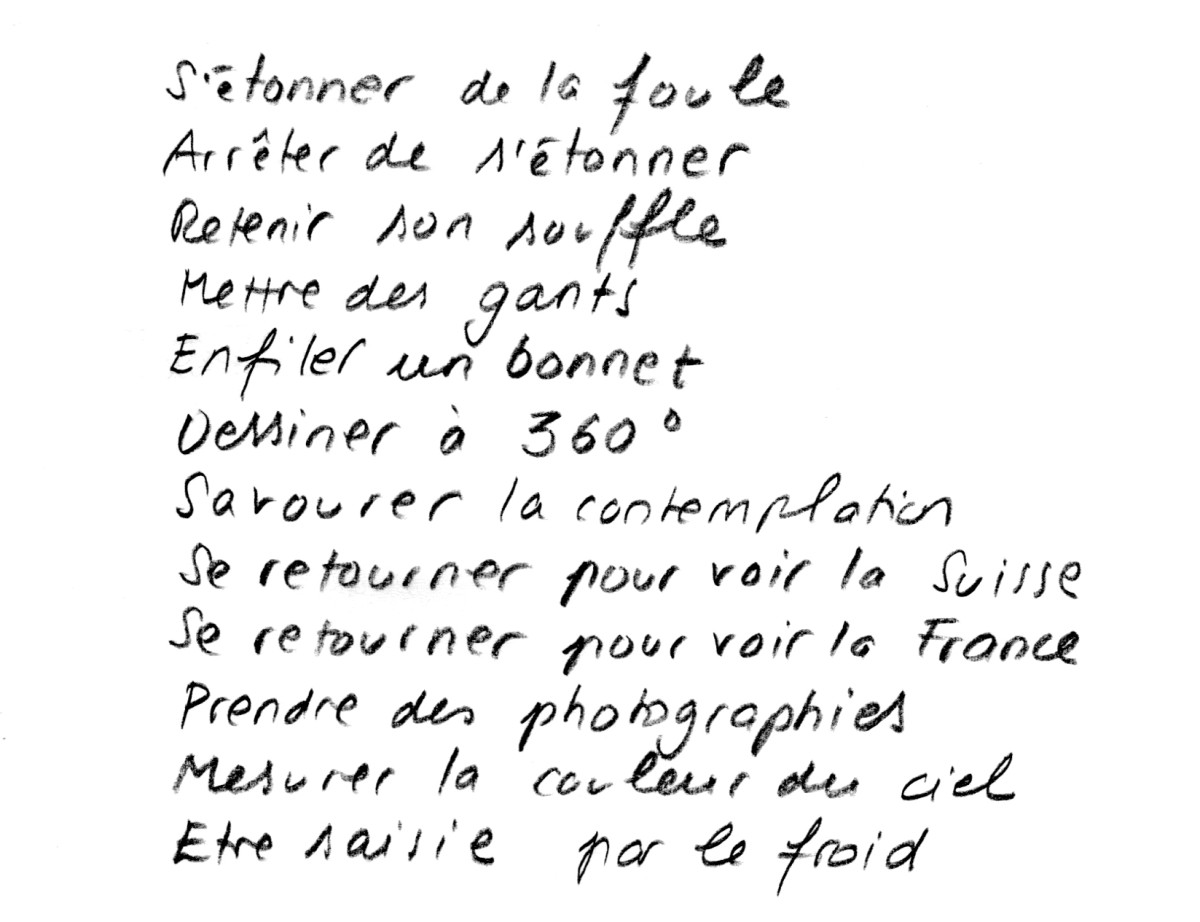 S'étonner de la foule
Arrêter de s'étonner
Retenir son souffle
Mettre des gants
Enfiler un bonnet
Dessiner à 360°
Savourer la contemplation
Se retourner pour voir la Suisse
Se retourner pour voir la France
Prendre des photographies
Mesurer la couleur du ciel
Etre saisie par le froid